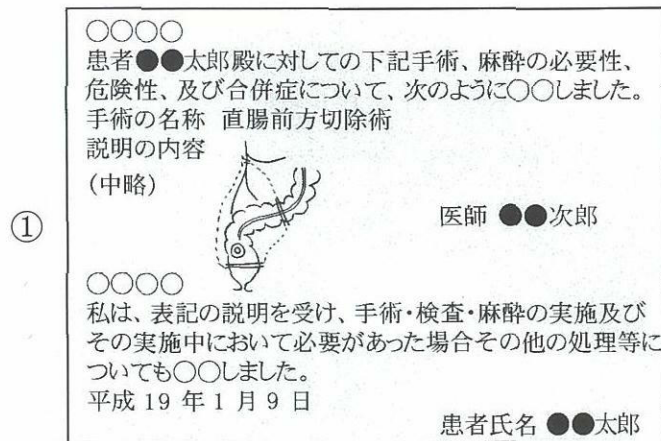 ○○○○
患者●●太郎殿に対しての下記手術、麻酔の必要性、
危険性、及び合併症について、次のように○○しました。
手術の名称 直腸前方切除術
説明の内容
(中略)
医師 ●●次郎
①
○○○○
私は、表記の説明を受け、手術・検査・麻酔の実施及び
その実施中において必要があった場合その他の処理等に
ついても○○しました。
平成 19 年 1 月 9 日
患者氏名 ●●太郎